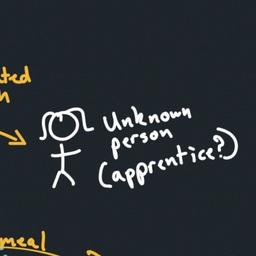 ted
Unknown
person
(apprentice?)
meal